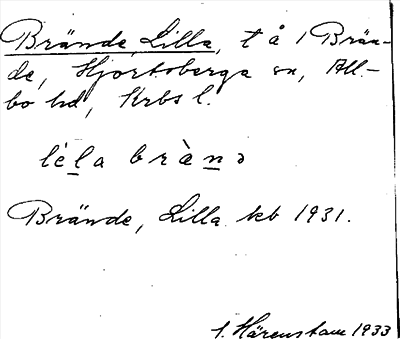 Brände, Lilla, t å i Brän-
de, Hjortsberga sn, All-
bo hd, Krbs l.
lèla brànə
Brände, Lilla kb 1931.
S. Härenstam 1933